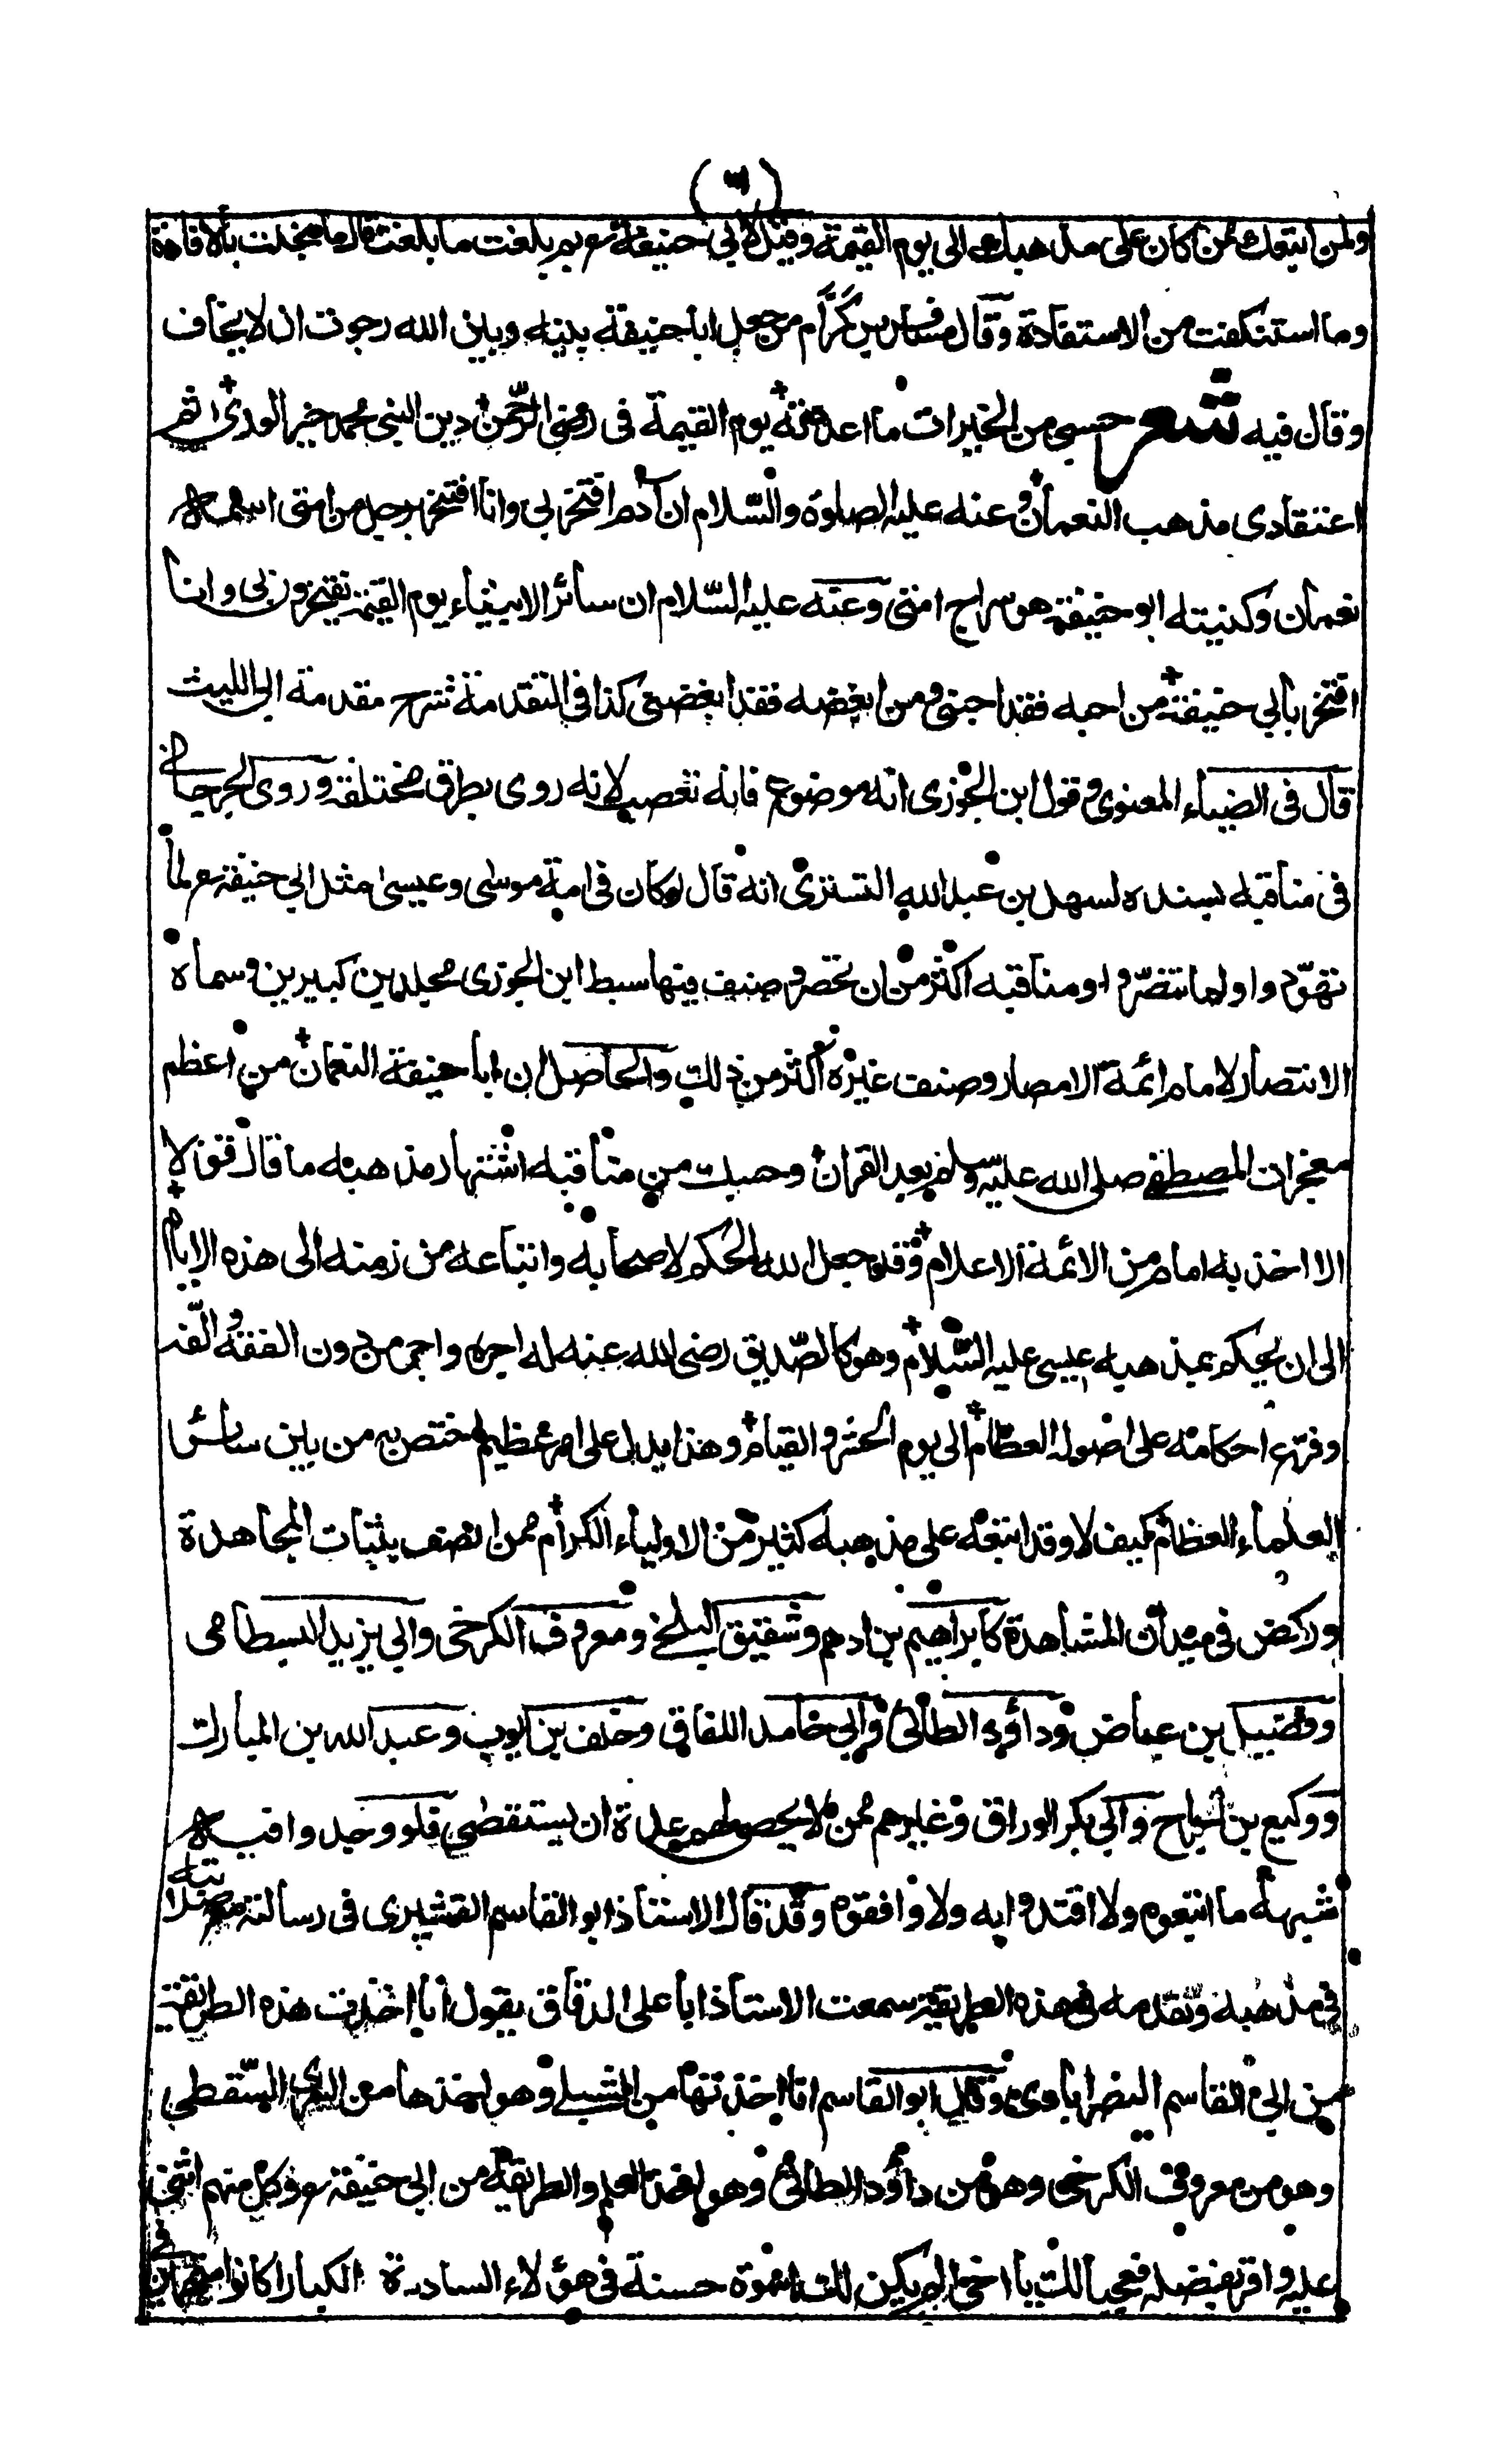 ولمن اتبعك ممن كان على مذهبك الى يوم القيمة وقيل لابي حنيفة رح بم بلغت ما بلغت قال ما بخلت بالافادة
وما استنكفت من الاستفادة وقال مسافر بن كَرَّام من جعل ابا حنيفة بينه وبين الله رجوت ان لا يخاف
وقال فيه شعر حسبي من الخيرات ما اعددته يوم القيمة في رضى الرّحمن دين النبي محمد خير الورى ثم
اعتقادي مذهب النعمان وعنه عليه الصلوة والسّلام ان آدم افتخر بي وانا افتخر برجل من امتى اسمه
نعمان وكنيته ابو حنيفة هو سراج امتى وعنه عليه السّلام ان سائر الانبياء يوم القيمة تفتخرون بي وانا
افتخر بابي حنيفة من احبه فقد احبني ومن ابغضه فقد ابغضني كذا في التقدمة شرح مقدمة ابي الليث
قال في الضياء المعنوى وقول ابن الجوزى انه موضوع فانه تعصب لانه روى بطرق مختلفة وروى الجرجاني
في مناقبه بسنده لسهل بن عبد الله التستري انه قال لو كان في امة موسى وعيسى مثل ابي حنيفة رح لما
تهوّدوا ولما تنصّروا ومناقبه اكثر من ان تحصر وصنف فيها سبط ابن الجوزى مجلدين كبيرين وسماه
الانتصار لامام ائمة الامصار وصنف غيره اكثر من ذلك والحاصل ان ابا حنيفة النعمان من اعظم
معجزات المصطفى صلى الله عليه وسلم بعد القران وحسبك من مناقبه اشتهار مذهبه ما قال قولا
الا اخذ به امام من الائمة الاعلام وقد جعل الله الحكم لاصحابه واتباعه من زمنه الى هذه الايام
الى ان يحكم بمذهبه عيسى عليه السّلام وهو كالصّديق رضى الله عنه له اجره واجر من دون الفقه والّفه
وفرّع احكامه على اصوله العظام الى يوم الحشر والقيام وهذا يدل على امر عظيم اختص به من بين سائر
العلماء العظام كيف لا وقد اتبعه على مذهبه كثير من الاولياء الكرام ممن اتصف بثبات المجاهدة
وركض في ميدان المشاهدة كابراهيم بن ادهم وشقيق البلخي ومعروف الكرخي وابي يزيد البسطامى
وفضيل بن عياض وداؤد الطائى وابي حامد اللفاف وخلف بن ايوب وعبد الله بن المبارك
ووكيع بن الجراح وابي بكر الوراق وغيرهم ممن لا يحصى لهم عدة ان يستقصى فلو وجدوا فيه
شبهة ما اتبعوه ولا اقتدوا به ولا وافقوه وقد قال الاستاذ ابو القاسم القشيرى في رسالته مع صلابته
في مذهبه وتقدمه في هذه الطريقة سمعت الاستاذ ابا على الدقاق يقول انا اخذت هذه الطريقة
من ابي القاسم النصراباذى وقال ابو القاسم انا اخذتها من الشبلي وهو اخذها من السرى السّقطي
وهو من معروف الكرخي وهو من داؤد الطائى وهو اخذ العلم والطريقة من ابي حنيفة رح وكل منهم اثنى
عليه واقر بفضله فعجبا لك يا اخي الم يكن لك اسوة حسنة في هؤلاء السادة الكبار اكانوا متهمين في